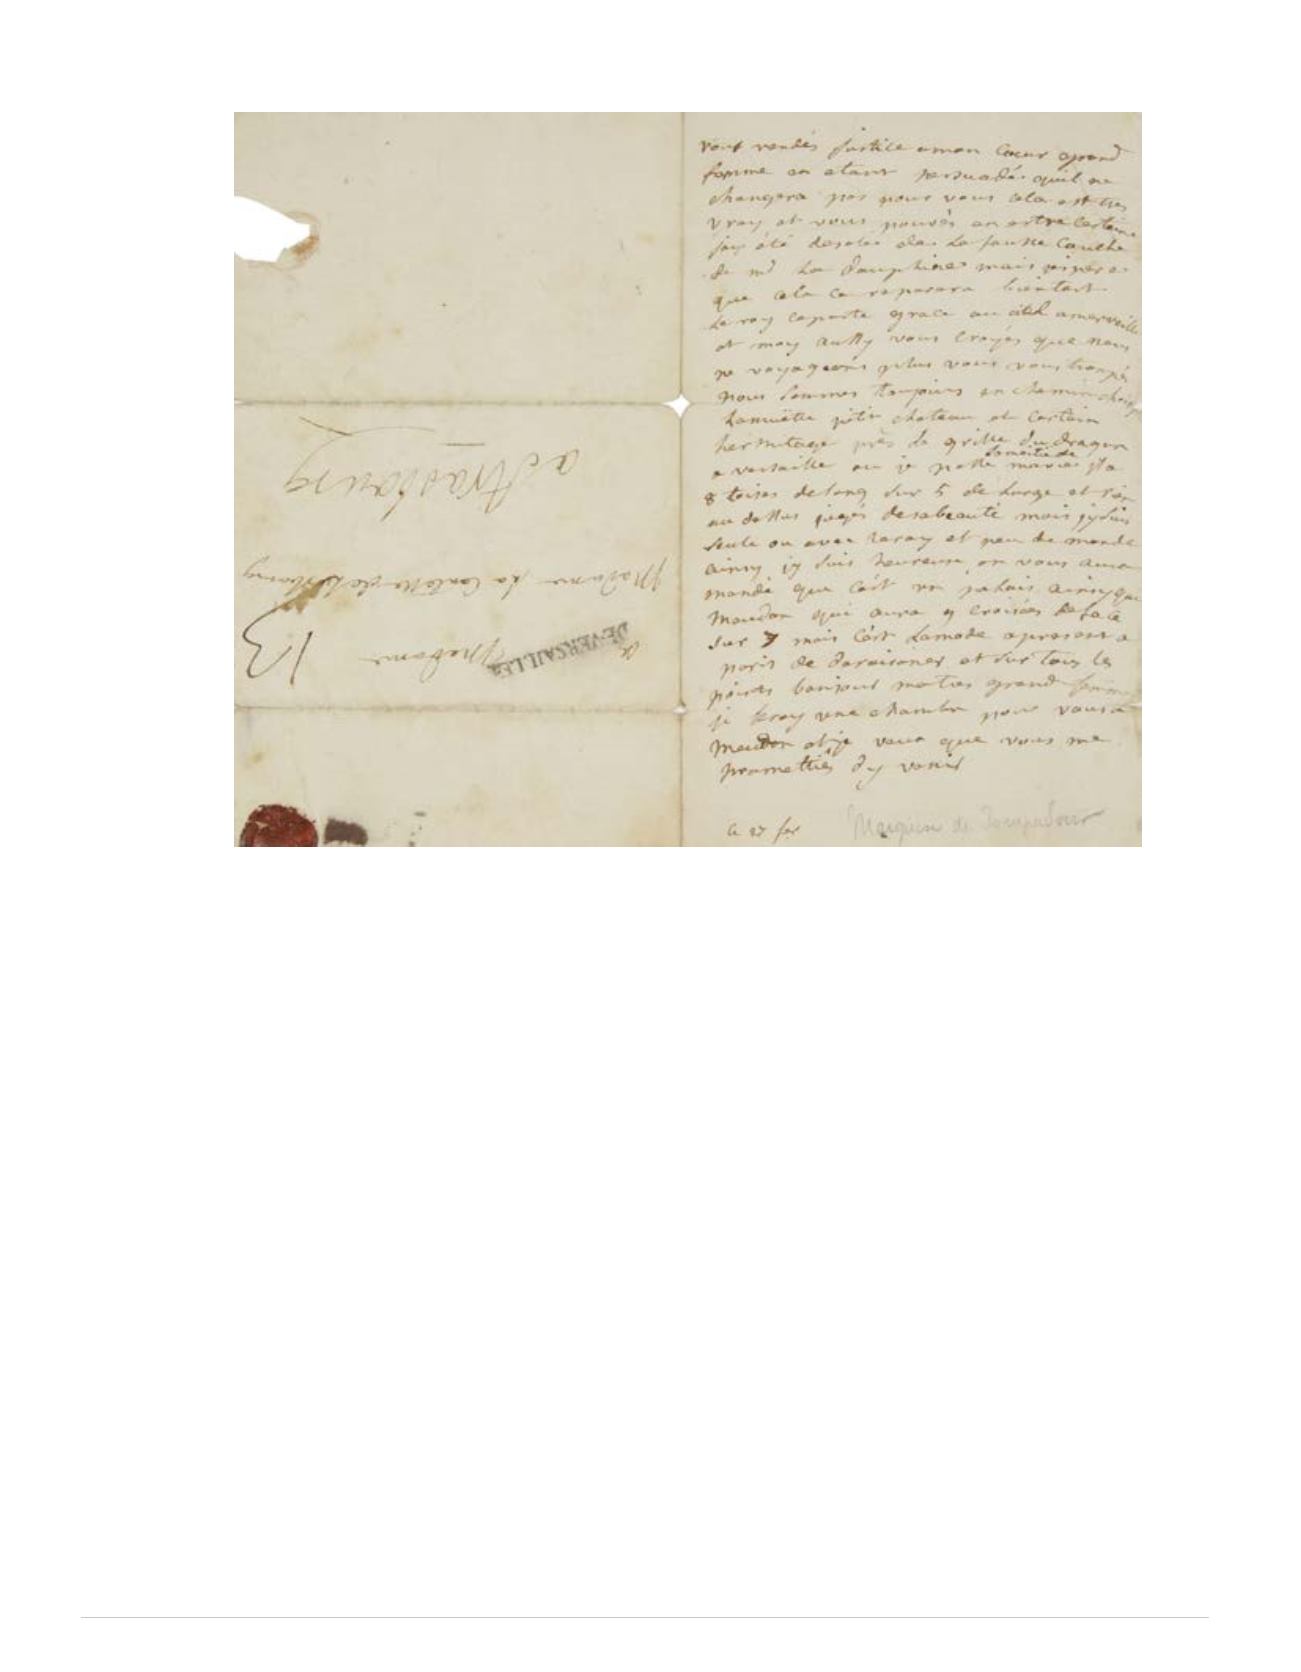 vous rendés justice a mon coeur grand
femme en etant persuadé quil ne
changera pas pour vous cela est tres
vray et vous pouvés en estre certaine
jay été desolée de la fausse couche
de md la dauphine mais jespere
que cela ce reparera bientost
le roy ce porte grace au ciel a merveille
et moy aussy vous croyés que nous
ne voyageons plus vous vous trompés
nous sommes toujours en chemin choisy
la muette petit chateau et certain
hermitage près la grille du dragon
a versaille ou je passe la moitié de ma vie il a
8 toises de long sur 5 de large et rien
au dessus jugés de sa beauté mais jy suis
seule ou avec le roy et peu de monde
ainsy jy suis heureuse on vous aura
mandé que cest un palais ainsy que
meudon qui aura 9 croisées de face
sur 7 mais cest la mode apresent a
paris de deraisoner et sur tous les
points bonjour ma tres grand femme
je feray une chambre pour vous a
meudon et je veux que vous me
promettiés dy venir
ce 27 fer
Marquise de Pompadour
a Madame
DE VERSAILLES
13
Madame la Comtesse de Lutzelbourg
a Strasbourg